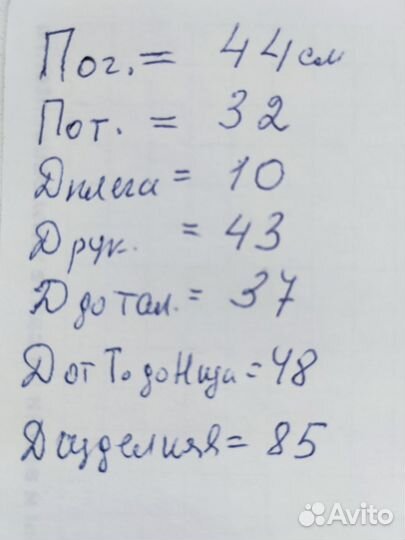 Пог. = 44 см
Пот. = 32
Дплега = 10
Друк. = 43
Д до тал. = 37
Д от Т. до Низа = 48
Д изделияя = 85
Avito